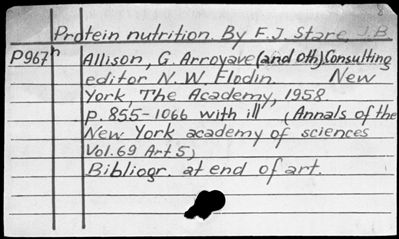 Protein nutrition. By F.J. Stare, J.B.
P967n Allison, G. Arroyave (and oth.) Consulting
editor N.W. Flodin. New
York, The Academy, 1958.
p. 855-1066 with ill (Annals of the
New York academy of sciences
Vol. 69 Art 5)
Bibliogr. at end of art.